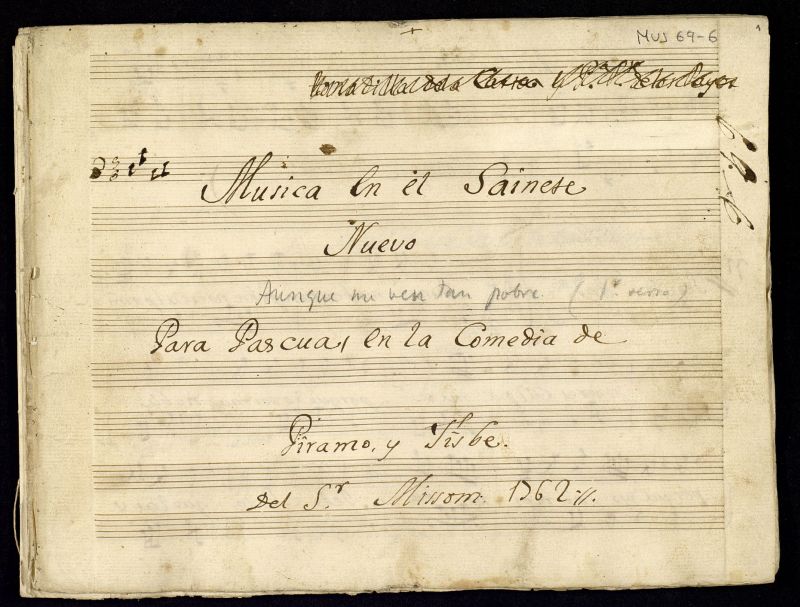 MUS 69-6
Musica en el Sainete
Nuevo
Aunque me ven tan pobre. (1r. verso)
Para Pascuas en la Comedia de
Piramo, y Tisbe.
Del S.r Misson. 1762